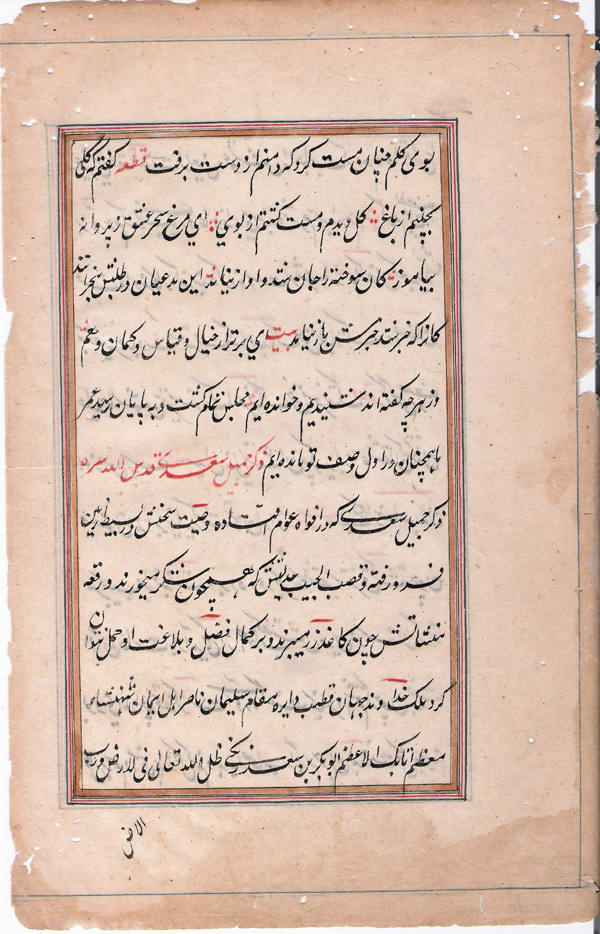 بوی گلم چنان مست کرد که دامنم از دست برفت قطعه گفتم که گلی
بچینم از باغ گل دیدم و مست گشتم از بوی ای مرغ سحر عشق ز پروانه
بیاموز کان سوخته را جان شد و اواز نیامد این مدعیان در طلبش بیخبرانند
کانرا که خبر شد خبرش باز نیامد بیت ای برتر از خیال و قیاس و گمان و وهم
وز هر چه گفته اند شنیدیم و خوانده ایم مجلس تمام گشت و به پایان رسید عمر
ما همچنان در اول وصف تو مانده ایم ذکر جمیل سعدی قدس الله سره
ذکر جمیل سعدی که در افواه عوام افتاده وصیت سخنش در بسیط زمین
فرو رفته و قصب الجیب حدیقش که همچون شکر میخورند و رقعه
منشاتش چون کاغذ زر میبرند و بر کمال فضل و بلاغت او حمل نتوان
کرد بلکه خداوند جهان قطب دایره مقام سلیمان ناصر اهل ایمان شهنشاه
معظم اتابک الاعظم ابوبکر بن سعد زنگی ظل الله تعالی فی الارض و رب
الارض